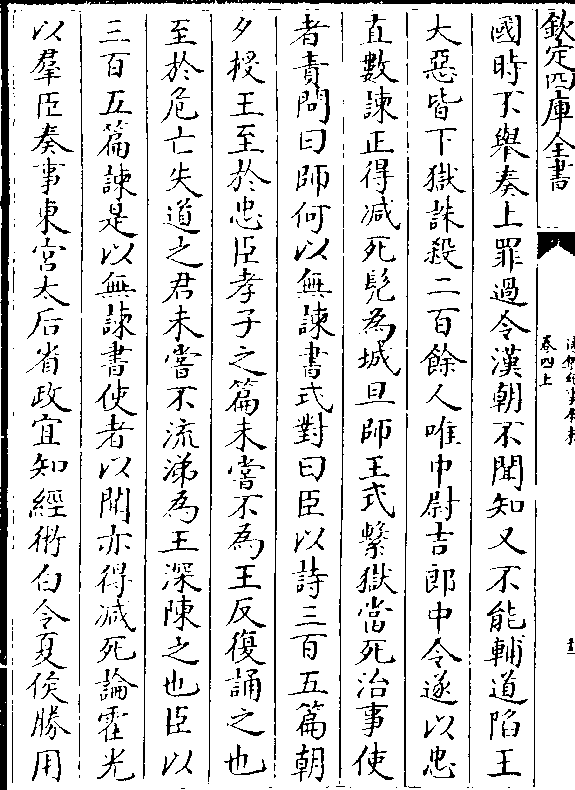 欽定四庫全書
卷四上
國時不舉奏上罪過令漢朝不聞知又不能輔道陷王
大惡皆下獄誅殺二百餘人唯中尉吉郎中令遂以忠
直數諫正得减死髡為城旦師王式繫獄當死治事使
者責問曰師何以無諫書式對曰臣以詩三百五篇朝
夕授王至於忠臣孝子之篇未嘗不為王反復誦之也
至於危亡失道之君未嘗不流涕為王深陳之也臣以
三百五篇諫是以無諫書使者以聞亦得减死論霍光
以羣臣奏事東宮太后省政宜知經術白令夏侯勝用